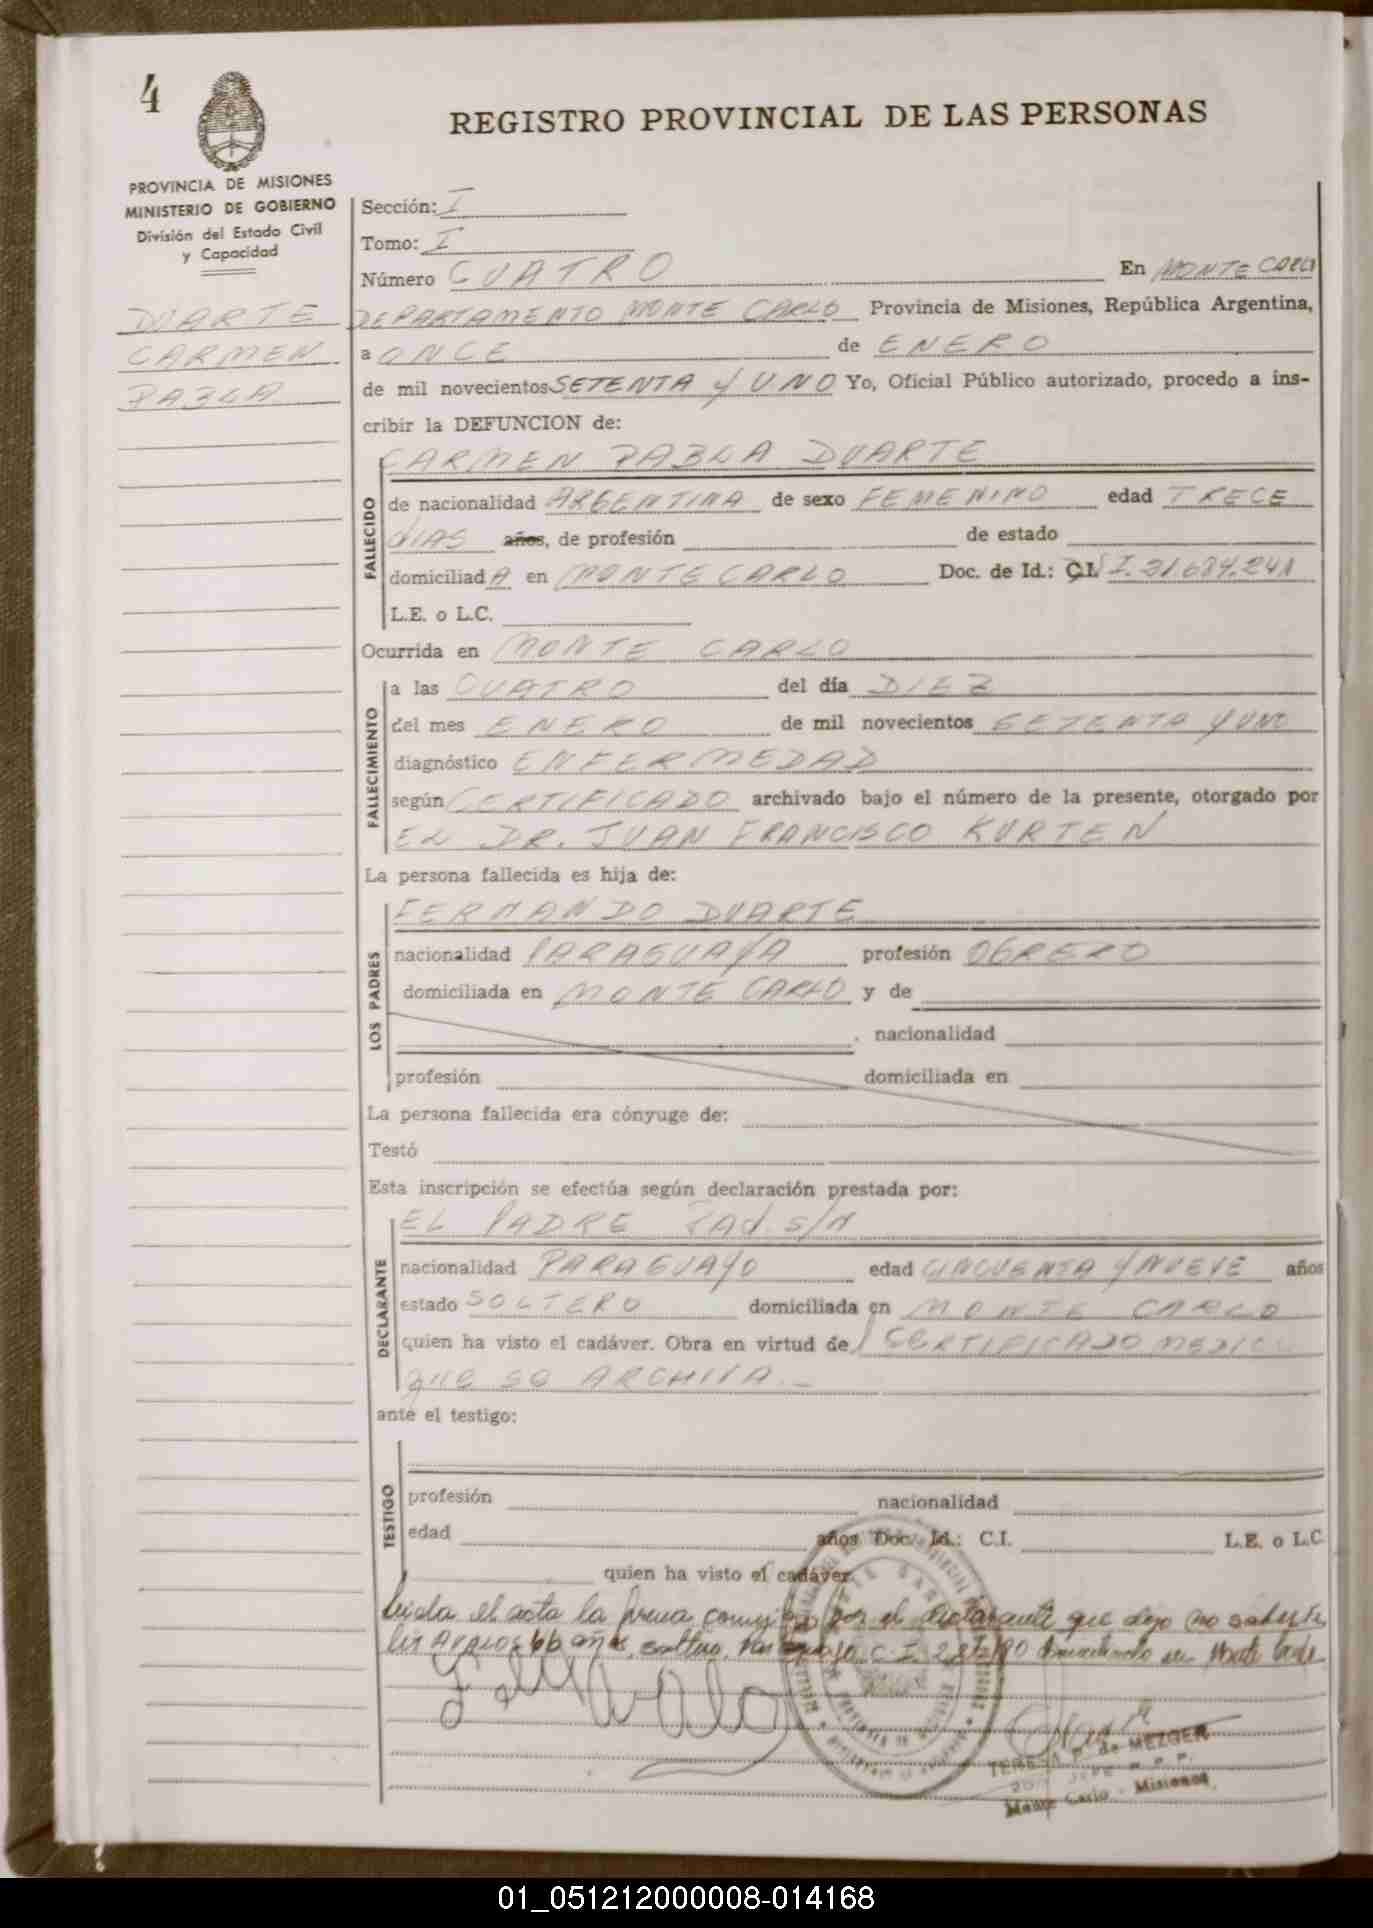 4
REGISTRO PROVINCIAL DE LAS PERSONAS
PROVINCIA DE MISIONES
MINISTERIO DE GOBIERNO
División del Estado Civil
y Capacidad
DUARTE
CARMEN
PABLA
Sección: I
Tomo: I
Número CUATRO En MONTE CARLO
DEPARTAMENTO MONTE CARLO Provincia de Misiones, República Argentina,
a ONCE de ENERO
de mil novecientos SETENTA Y UNO Yo, Oficial Público autorizado, procedo a ins-
cribir la DEFUNCION de:
CARMEN PABLA DUARTE
FALLECIDO
de nacionalidad ARGENTINA de sexo FEMENINO edad TRECE
DIAS años, de profesión de estado
domiciliadA en MONTE CARLO Doc. de Id.: C.I. 21.684.241
L.E. o L.C.
Ocurrida en MONTE CARLO
FALLECIMIENTO
a las CUATRO del día DIEZ
del mes ENERO de mil novecientos SETENTA Y UNO
diagnóstico ENFERMEDAD
según CERTIFICADO archivado bajo el número de la presente, otorgado por
EL DR. JUAN FRANCISCO KURTEN
La persona fallecida es hija de:
LOS PADRES
FERNANDO DUARTE
nacionalidad PARAGUAYA profesión OBRERO
domiciliada en MONTE CARLO y de
, nacionalidad
profesión domiciliada en
La persona fallecida era cónyuge de:
Testó
Esta inscripción se efectúa según declaración prestada por:
DECLARANTE
EL PADRE s/n
nacionalidad PARAGUAYO edad CINCUENTA Y NUEVE años
estado SOLTERO domiciliada en MONTE CARLO
quien ha visto el cadáver. Obra en virtud de CERTIFICADO MEDICO
que se ARCHIVA.-
ante el testigo:
TESTIGO
profesión nacionalidad
edad años Doc. Id.: C.I. L.E. o L.C.
quien ha visto el cadáver.
Leida el acta la firma conmigo por el declarante que dijo no saber
66 años, soltero, C.I. domiciliado en Monte Carlo
TERESA P. de MEZGER
JEFE R. P. P.
Monte Carlo - Misiones
01_051212000008-014168